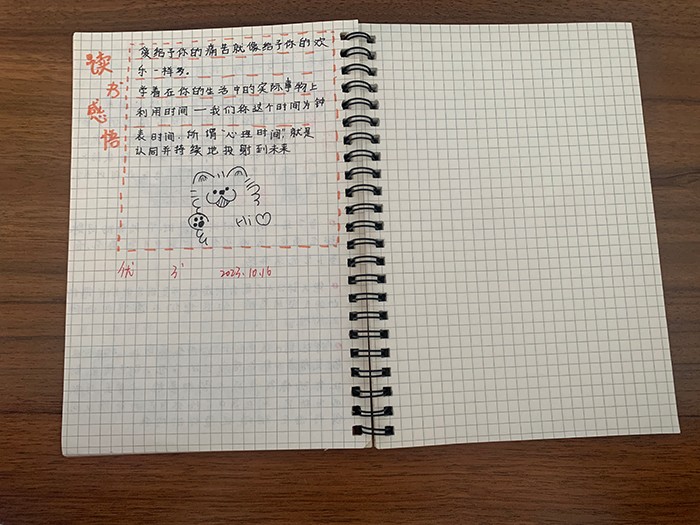 读书感悟
爱给予你的痛苦就像给予你的欢
乐一样多。
学着在你的生活中的实际事物上
利用时间——我们称这个时间为钟
表时间.所谓"心理时间",就是
认同并持续地投射到未来
Hi
优 3
2023.10.16